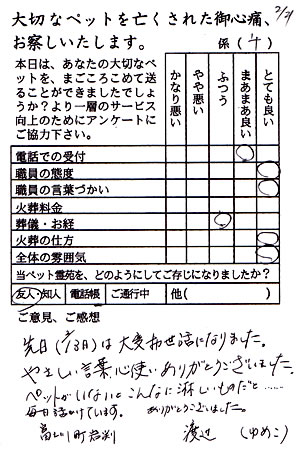 大切なペットを亡くされた御心痛、
お察しいたします。 係( )
本日は、あなたの大切なペッ
トを、まごころこめて送
ることができましたでしょ
うか？より一層のサービス
向上のためにアンケートに
ご協力下さい。
かなり悪い
やや悪い
ふつう
まあまあ良い
とても良い
電話での受付
職員の態度
職員の言葉づかい
火葬料金
葬儀・お経
火葬の仕方
全体の雰囲気
当ペット霊苑を、どのようにしてご存じになりましたか？
友人・知人 電話帳 ご通行中 他( )
ご意見、ご感想
先日( 13日)は大変お世話になりました。
やさしい言葉、心使いありがとうございました。
ペットがいないとこんなに淋しいものだと……
毎日泣いています。 ありがとうございました。
渡辺 (ゆめこ)